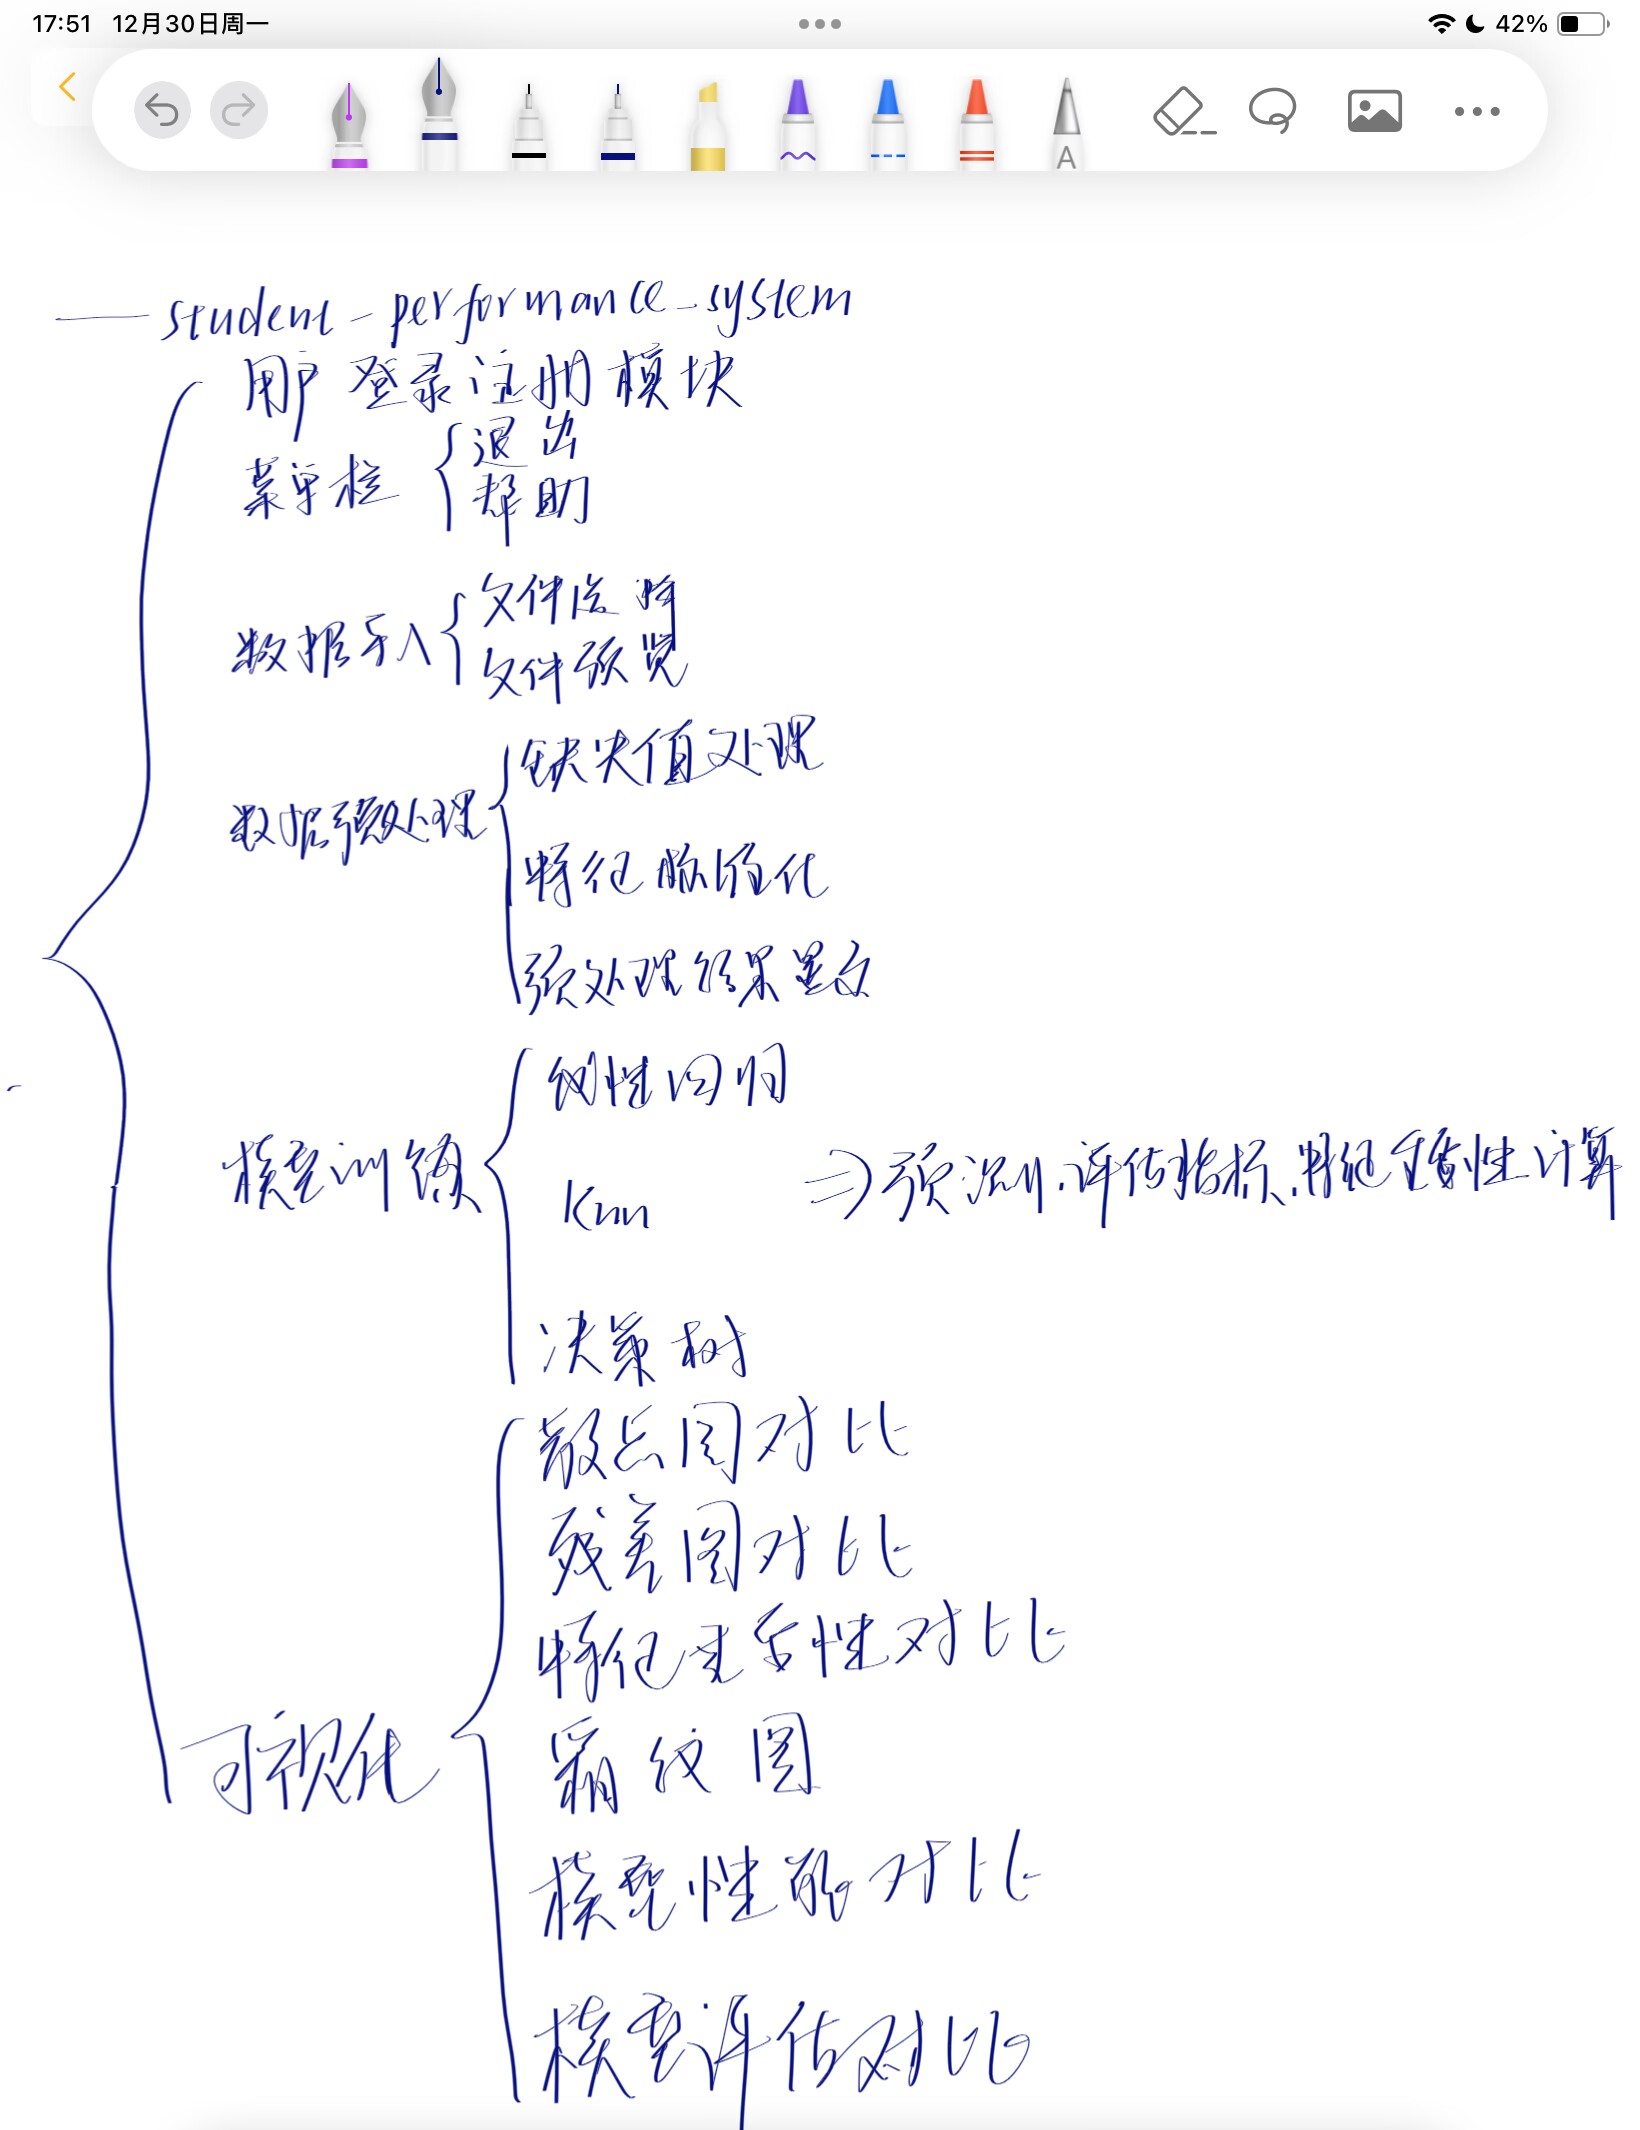 17:51 12月30日周一
42%
A
student-performance-system
用户登录注册模块
菜单栏
退出
帮助
数据导入
文件选择
文件预览
数据预处理
缺失值处理
特征标准化
预处理结果显示
模型训练
线性回归
Knn
决策树
⇒预测.评估指标.特征重要性计算
可视化
散点图对比
残差图对比
特征重要性对比
图
模型性能对比
模型评估对比